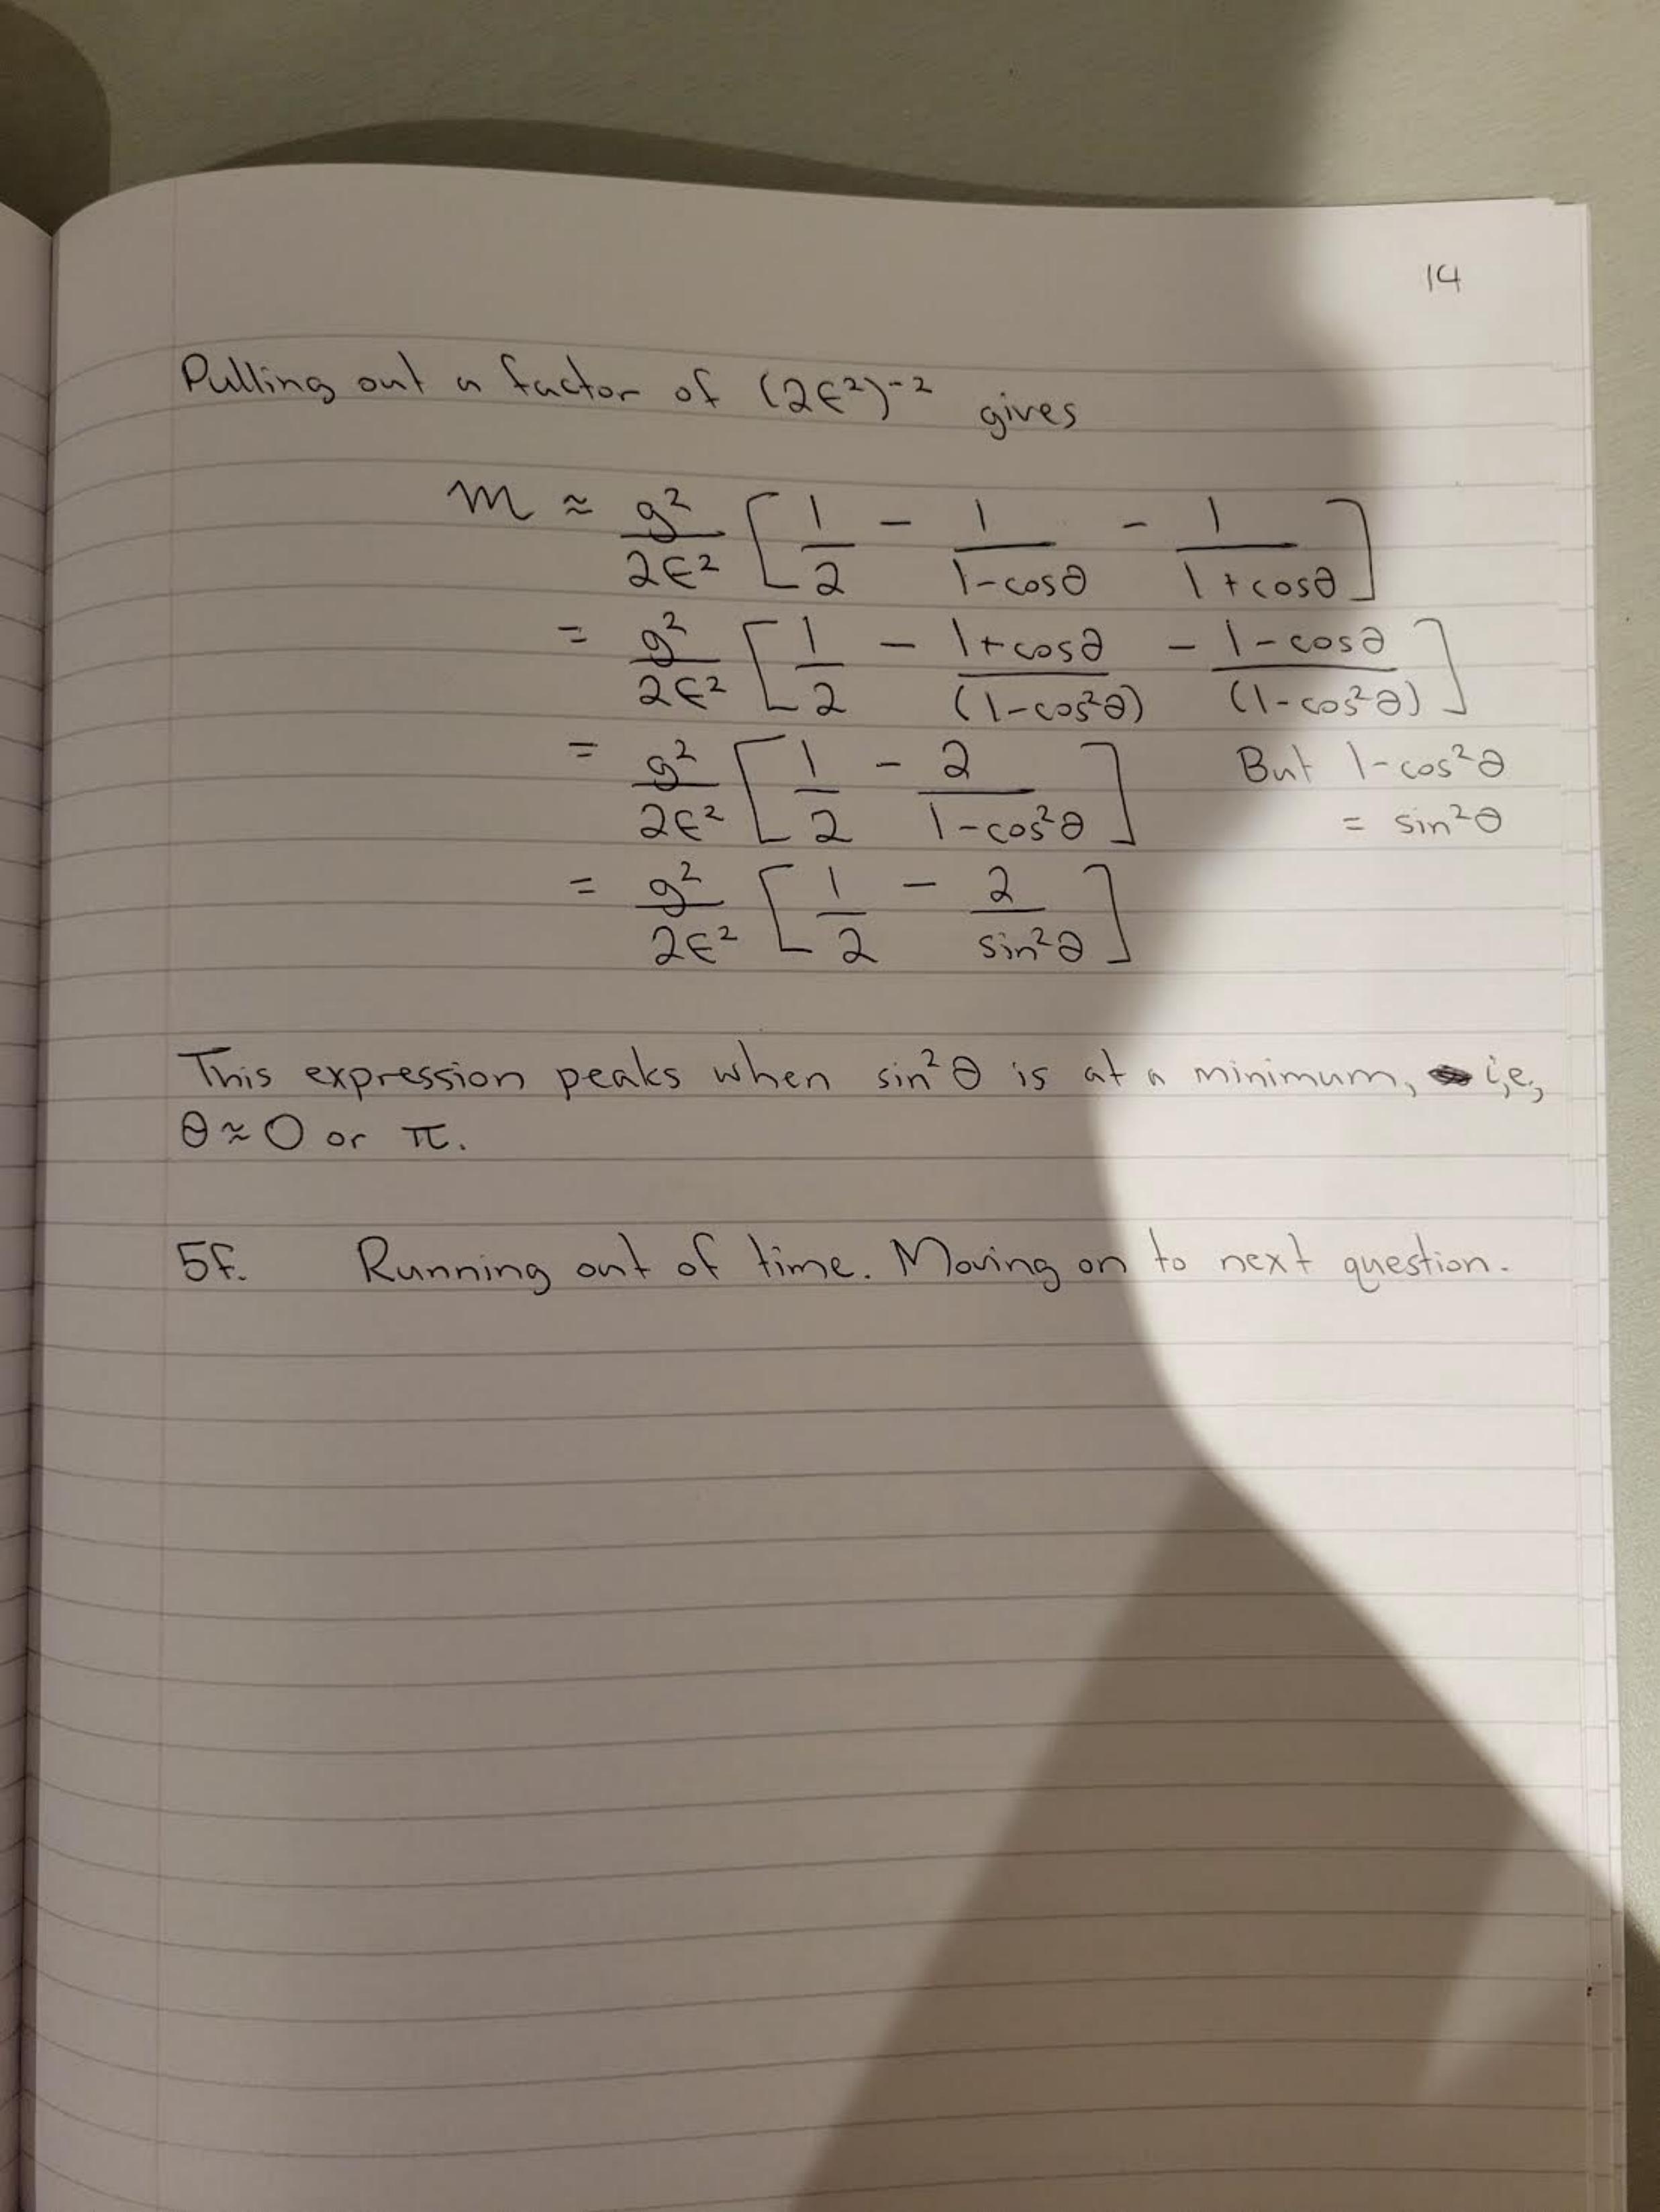 14
Pulling out a factor of (2ϵ²)⁻² gives
m ≈ g²/2ϵ² [1/2 - 1/(1-cosθ) - 1/(1+cosθ)]
= g²/2ϵ² [1/2 - (1+cosθ)/(1-cos²θ) - (1-cosθ)/(1-cos²θ)]
= g²/2ϵ² [1/2 - 2/(1-cos²θ)] But 1-cos²θ
= sin²θ
= g²/2ϵ² [1/2 - 2/sin²θ]
This expression peaks when sin²θ is at a minimum, i,e,
θ≈0 or π.
5f. Running out of time. Moving on to next question.